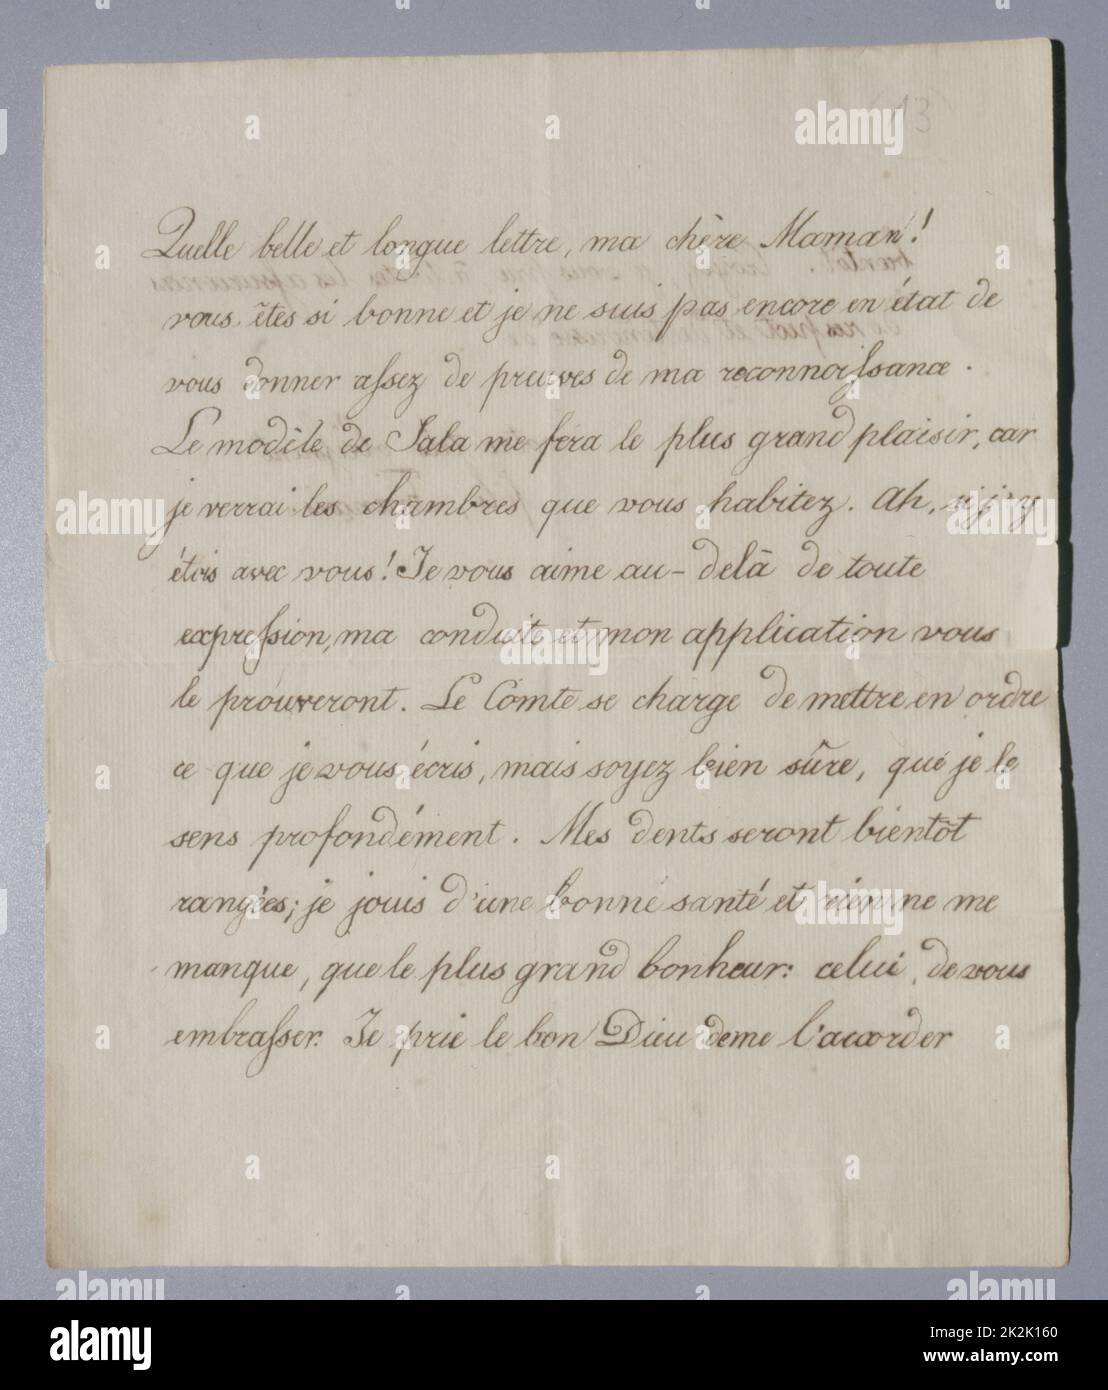 13
Quelle belle et longue lettre, ma chère Maman!
vous êtes si bonne et je ne suis pas encore en état de
vous donner assez de preuves de ma reconnoissance.
Le modèle de Sala me fera le plus grand plaisir, car
je verrai les chambres que vous habitez. Ah, si j'y
étois avec vous! Je vous aime au-delà de toute
expression, ma conduite et mon application vous
le prouveront. Le Comte se charge de mettre en ordre
ce que je vous écris, mais soyez bien sûre, que je le
sens profondément. Mes dents seront bientôt
rangées; je jouis d'une bonne santé et rien ne me
manque, que le plus grand bonheur: celui, de vous
embrasser. Je prie le bon Dieu de me l'accorder
alamy
Image ID: H2K2K160
www.alamy.com